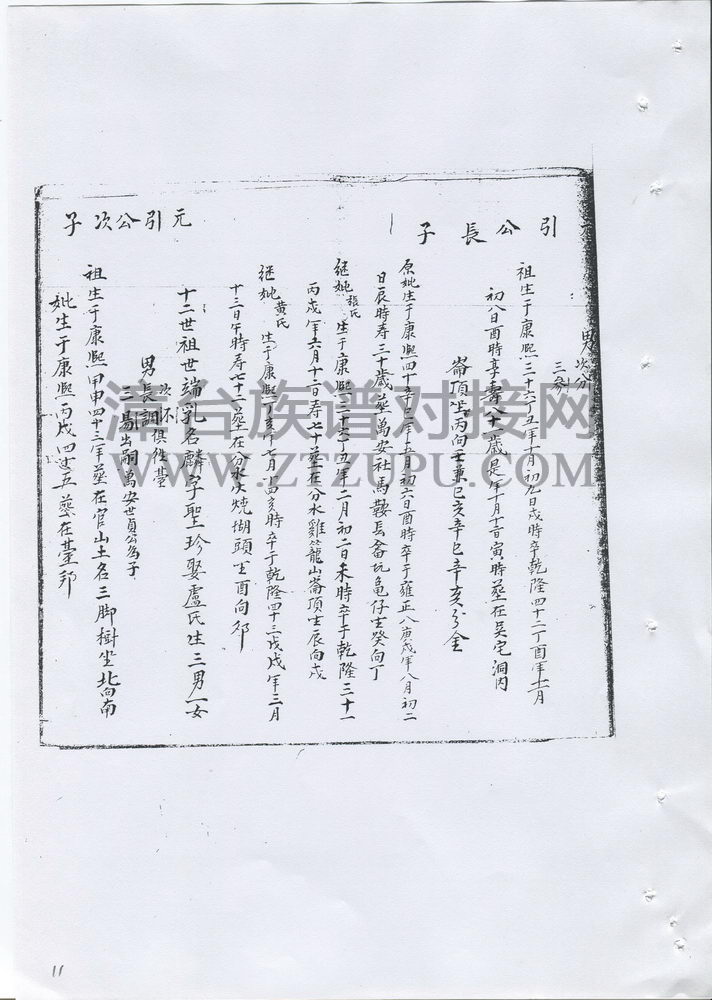 引公長子
男 次分
三參
祖生于康熙三十六丁丑年十月初九日戌時卒乾隆四十二丁酉年十一月
初八日酉時享壽八十一歲是年十月十一日寅時葬在吳宅洞內
崙頂坐丙向壬兼巳亥辛巳辛亥分金
原妣生于康熙四十年辛巳年五月初六日酉時卒于雍正八庚戌年八月初二
日辰時寿三十歲葬萬安社馬鞍長畲坑龜仔坐癸向丁
继妣張氏生于康熙三十六丁丑年二月初二日未時卒于乾隆三十一
丙戌年六月十二日寿七十葬在分水雞籠山崙頂坐辰向戌
继妣黄氏生于康熙丁亥年七月十四亥時卒于乾隆四十三戊戌年三月
十三日午時寿七十二葬在分水火燒堋頭坐酉向卯
元引公次子
十二世祖世端乳名麟字聖珍娶盧氏生三男一女
男長調
次不俱往臺
三易出嗣萬安世貞公為子
祖生于康熙甲申四十三年葬在官山土名三脚樹坐北向南
妣生于康熙丙戌四十五葬在臺邦
漳台族谱对接网
WWW.ZTZUPU.COM
11